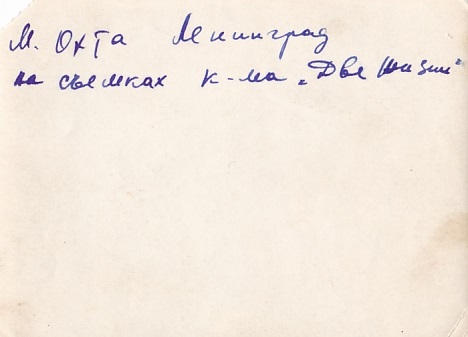 М. Охта Ленинград
на съемках к-ма „Две жизни"